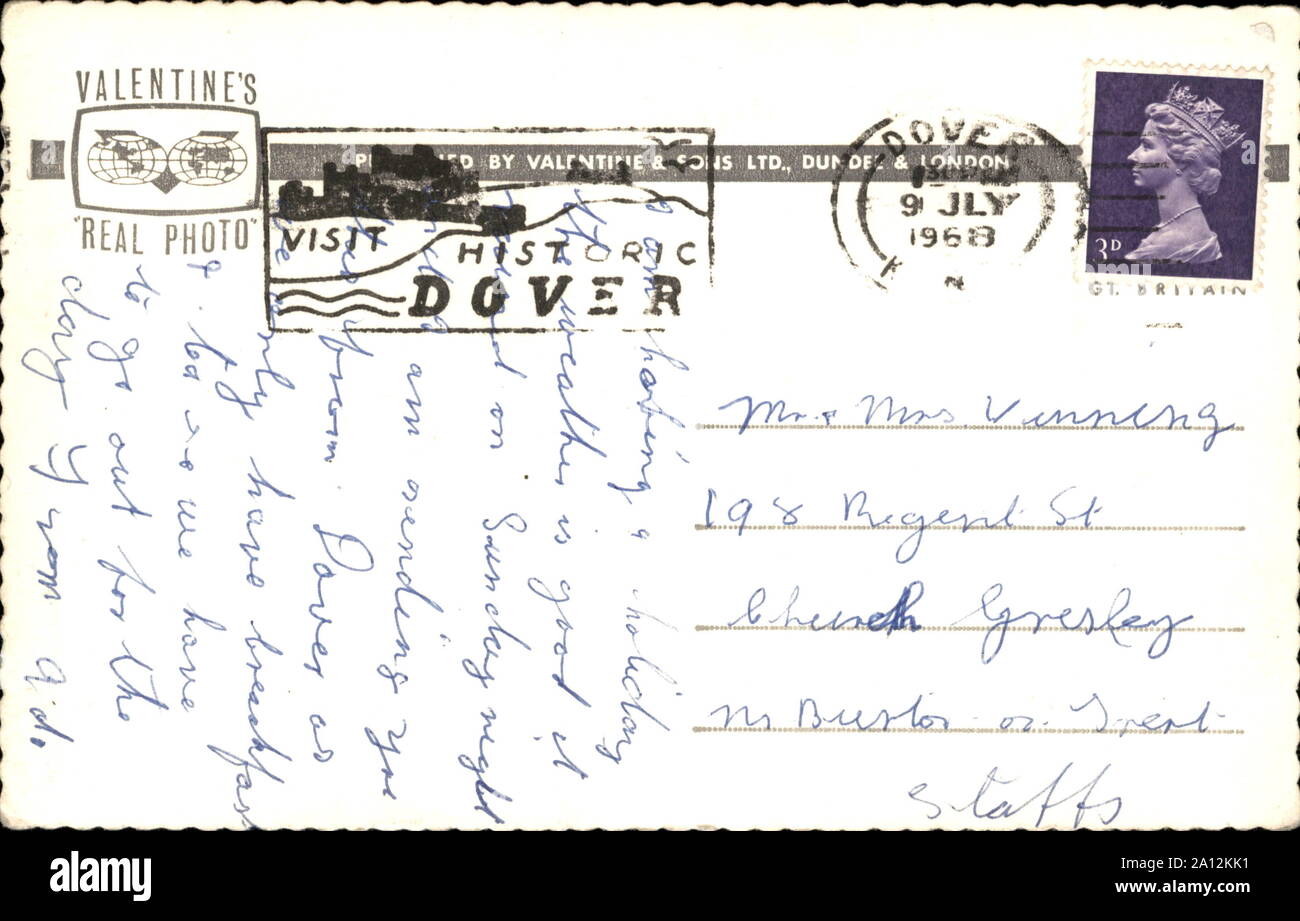 VALENTINE'S
"REAL PHOTO"
BY VALENTINE & SONS LTD., DUNDEE & LONDON
VISIT HISTORIC
DOVER
DOVER
9 JLY
1968
K N
3D
GT. BRITAIN
I am having a holiday
the weather is good it
on Sunday night
am sending you
from Dover as
we only have breakfast
& tea so we have
to go out for the
day From Aid.
Mr & Mrs. Vinning
198 Regent St
Church Gresley
Nr Burton on Trent
Staffs
alamy
a
Image ID: 2A12KK1
www.alamy.com